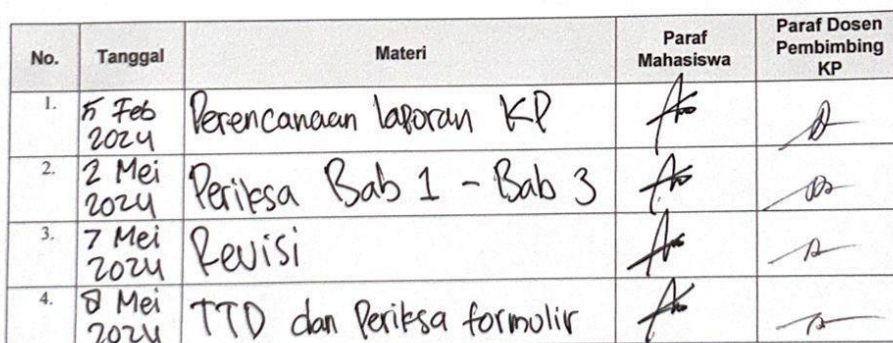 No. Tanggal Materi Paraf Mahasiswa Paraf Dosen Pembimbing KP
1. 5 Feb 2024 Perencanaan laporan KP
2. 2 Mei 2024 Periksa Bab 1 - Bab 3
3. 7 Mei 2024 Revisi
4. 8 Mei 2024 TTD dan Periksa formulir